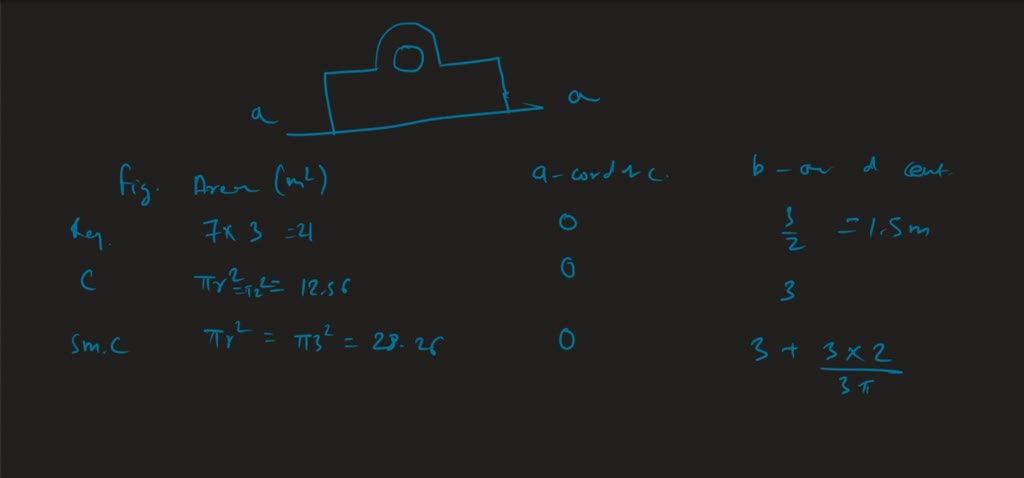 a
a
fig. Area (m²) a - cord c. b - or d cent.
Req. 7 x 3 = 21 0 3/2 = 1.5 m
C πr² = π2² = 12.56 0 3
Sm. C πr² = π3² = 28.26 0 3 + 3 x 2 / 3π